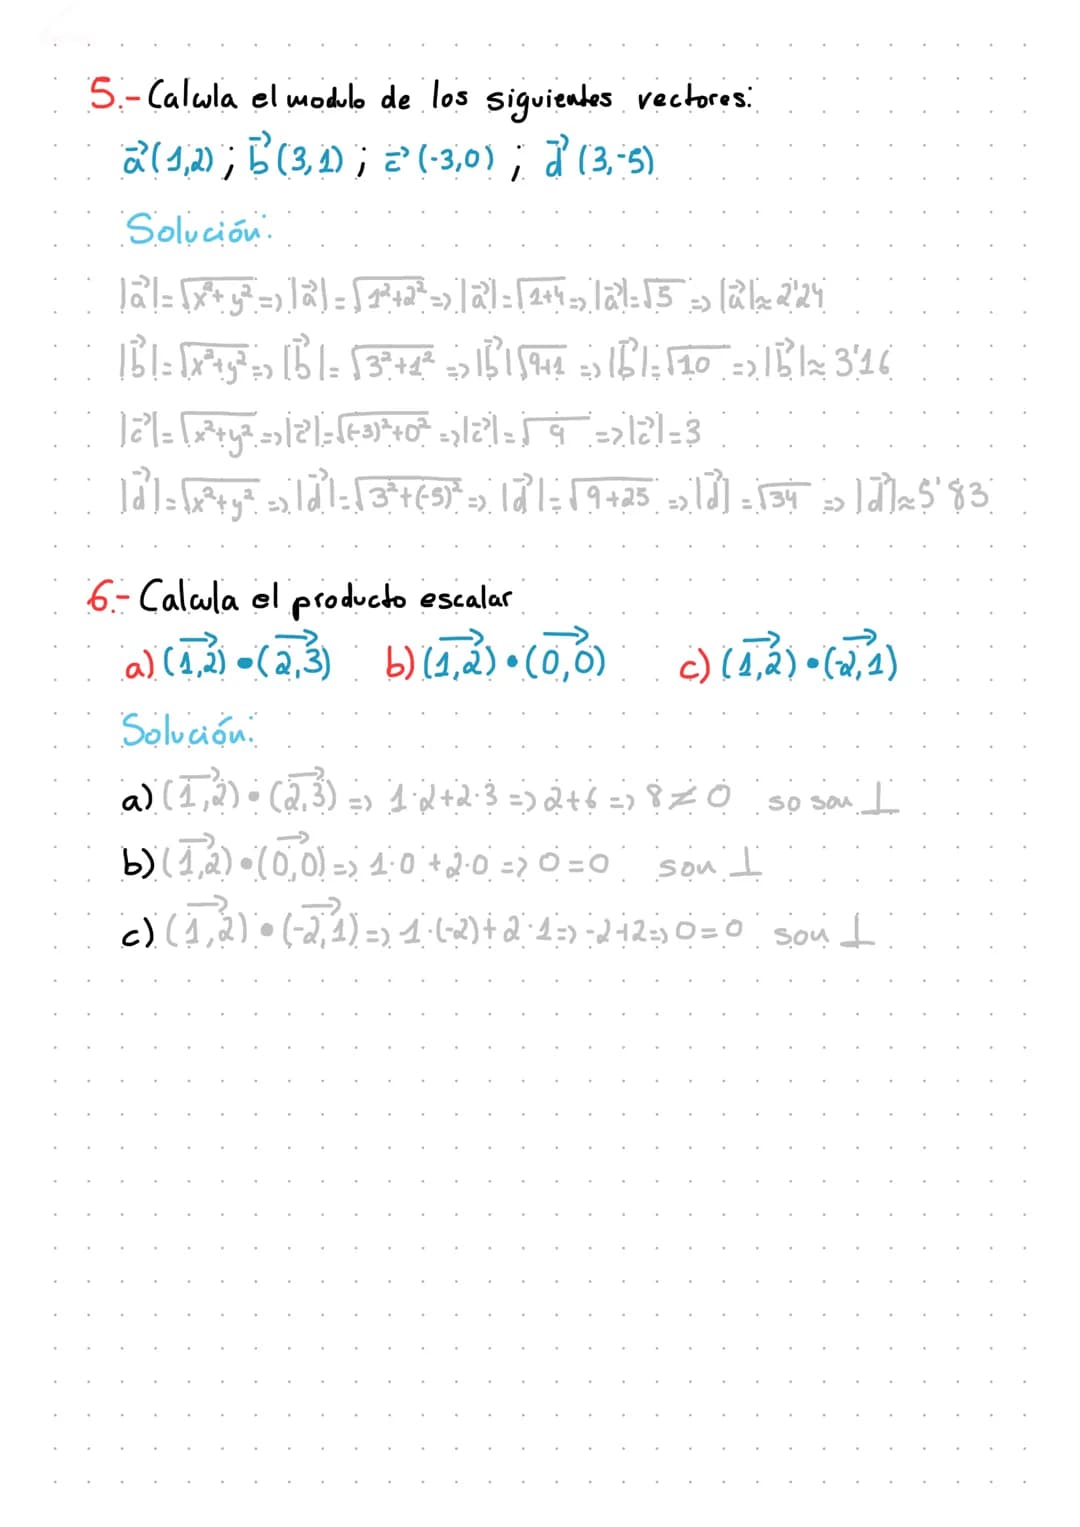 5.- Calcula el modulo de los siguientes vectores:
a⃗(1,2) ; b⃗(3,1) ; c⃗(-3,0) ; d⃗(3,-5)
Solución:
|a⃗|=√x²+y² => |a⃗|=√1²+2² => |a⃗|=√1+4 => |a⃗|=√5 => |a⃗|≈2'24
|b⃗|=√x²+y² => |b⃗|=√3²+1² => |b⃗|√9+1 => |b⃗|=√10 => |b⃗|≈3'16
|c⃗|=√x²+y² => |c⃗|=√(-3)²+0² => |c⃗|=√9 => |c⃗|=3
|d⃗|=√x²+y² => |d⃗|=√3²+(-5)² => |d⃗|=√9+25 => |d⃗|=√34 => |d⃗|≈5'83
6.- Calcula el producto escalar
a) (1,2)•(2,3) b) (1,2)•(0,0) c) (1,2)•(-2,1)
Solución:
a) (1,2)•(2,3) => 1·2+2·3 => 2+6 => 8≠0 so son ⊥
b) (1,2)•(0,0) => 1·0+2·0 => 0=0 son ⊥
c) (1,2)•(-2,1) => 1·(-2)+2·1 => -2+2 => 0=0 son ⊥